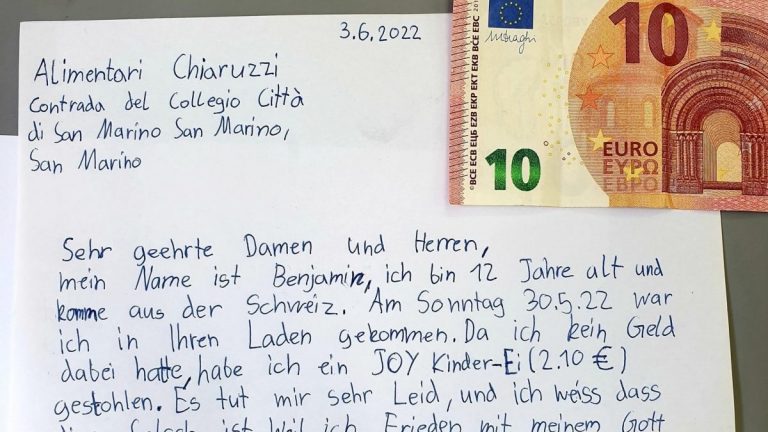 3.6.2022
Alimentari Chiaruzzi
Contrada del Collegio Città
di San Marino San Marino,
San Marino
Sehr geehrte Damen und Herren,
mein Name ist Benjamin, ich bin 12 Jahre alt und
komme aus der Schweiz. Am Sonntag 30.5.22 war
ich in Ihren Laden gekommen. Da ich kein Geld
dabei hatte, habe ich ein JOY Kinder-Ei (2.10 €)
gestohlen. Es tut mir sehr Leid, und ich weiss dass
ist Weil ich Frieden mit meinem Gott
10
EURO
ΕΥΡΩ
ЕВРО
10
BCE ECB ЕЦБ EZB EKP EKT EKB BCE EBC